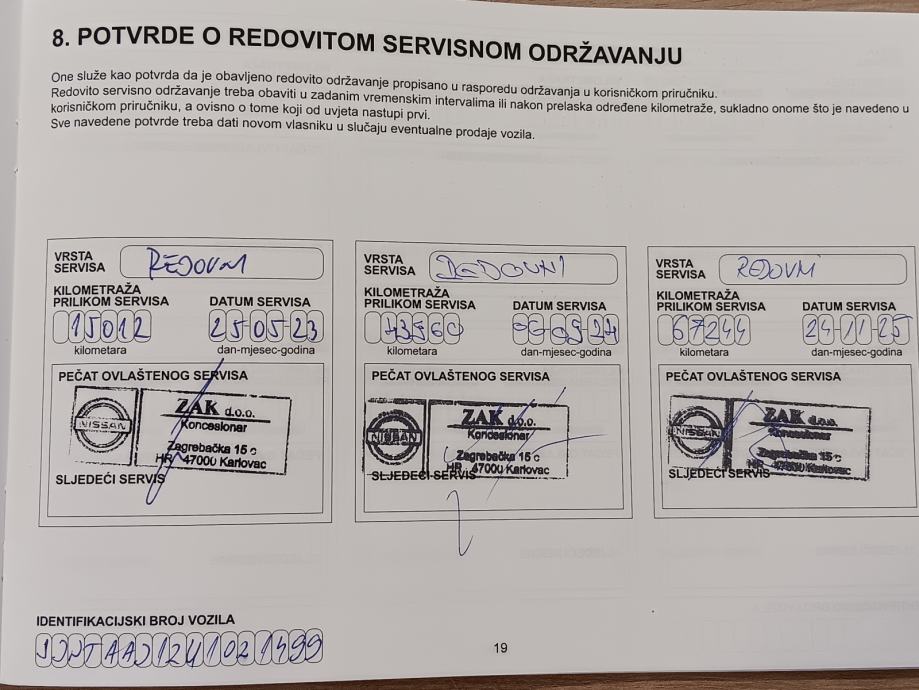 8. POTVRDE O REDOVITOM SERVISNOM ODRŽAVANJU
One služe kao potvrda da je obavljeno redovito održavanje propisano u rasporedu održavanja u korisničkom priručniku.
Redovito servisno održavanje treba obaviti u zadanim vremenskim intervalima ili nakon prelaska određene kilometraže, sukladno onome što je navedeno u
korisničkom priručniku, a ovisno o tome koji od uvjeta nastupi prvi.
Sve navedene potvrde treba dati novom vlasniku u slučaju eventualne prodaje vozila.
VRSTA
SERVISA
REDOVNI
KILOMETRAŽA
PRILIKOM SERVISA
DATUM SERVISA
15012
25-05-23
kilometara
dan-mjesec-godina
PEČAT OVLAŠTENOG SERVISA
NISSAN
ZAK d.o.o.
Koncesionar
Zagrebačka 15 c
HR 47000 Karlovac
SLJEDEĆI SERVIS
VRSTA
SERVISA
REDOVNI
KILOMETRAŽA
PRILIKOM SERVISA
DATUM SERVISA
kilometara
dan-mjesec-godina
PEČAT OVLAŠTENOG SERVISA
NISSAN
ZAK d.o.o.
Koncesionar
Zagrebačka 15 c
HR 47000 Karlovac
SLJEDEĆI SERVIS
VRSTA
SERVISA
REDOVNI
KILOMETRAŽA
PRILIKOM SERVISA
DATUM SERVISA
67244
24-11-25
kilometara
dan-mjesec-godina
PEČAT OVLAŠTENOG SERVISA
NISSAN
ZAK d.o.o.
Koncesionar
Zagrebačka 15 c
HR 47000 Karlovac
SLJEDEĆI SERVIS
IDENTIFIKACIJSKI BROJ VOZILA
19